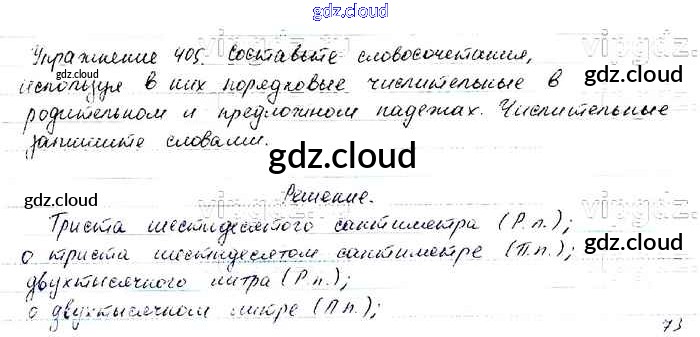 gdz.cloud
Упражнение 405. Составьте словосочетания,
используя в них порядковые числительные в
родительном и предложном падежах. Числительные
запишите словами.
Решение.
Триста шестидесятого сантиметра (Р.п.);
о триста шестидесятом сантиметре (П.п.);
двухтысячного литра (Р.п.);
о двухтысячном литре (П.п.);
73
gdz.cloud
gdz.cloud
gdz.cloud
gdz.cloud
gdz.cloud
gdz.cloud
gdz.cloud